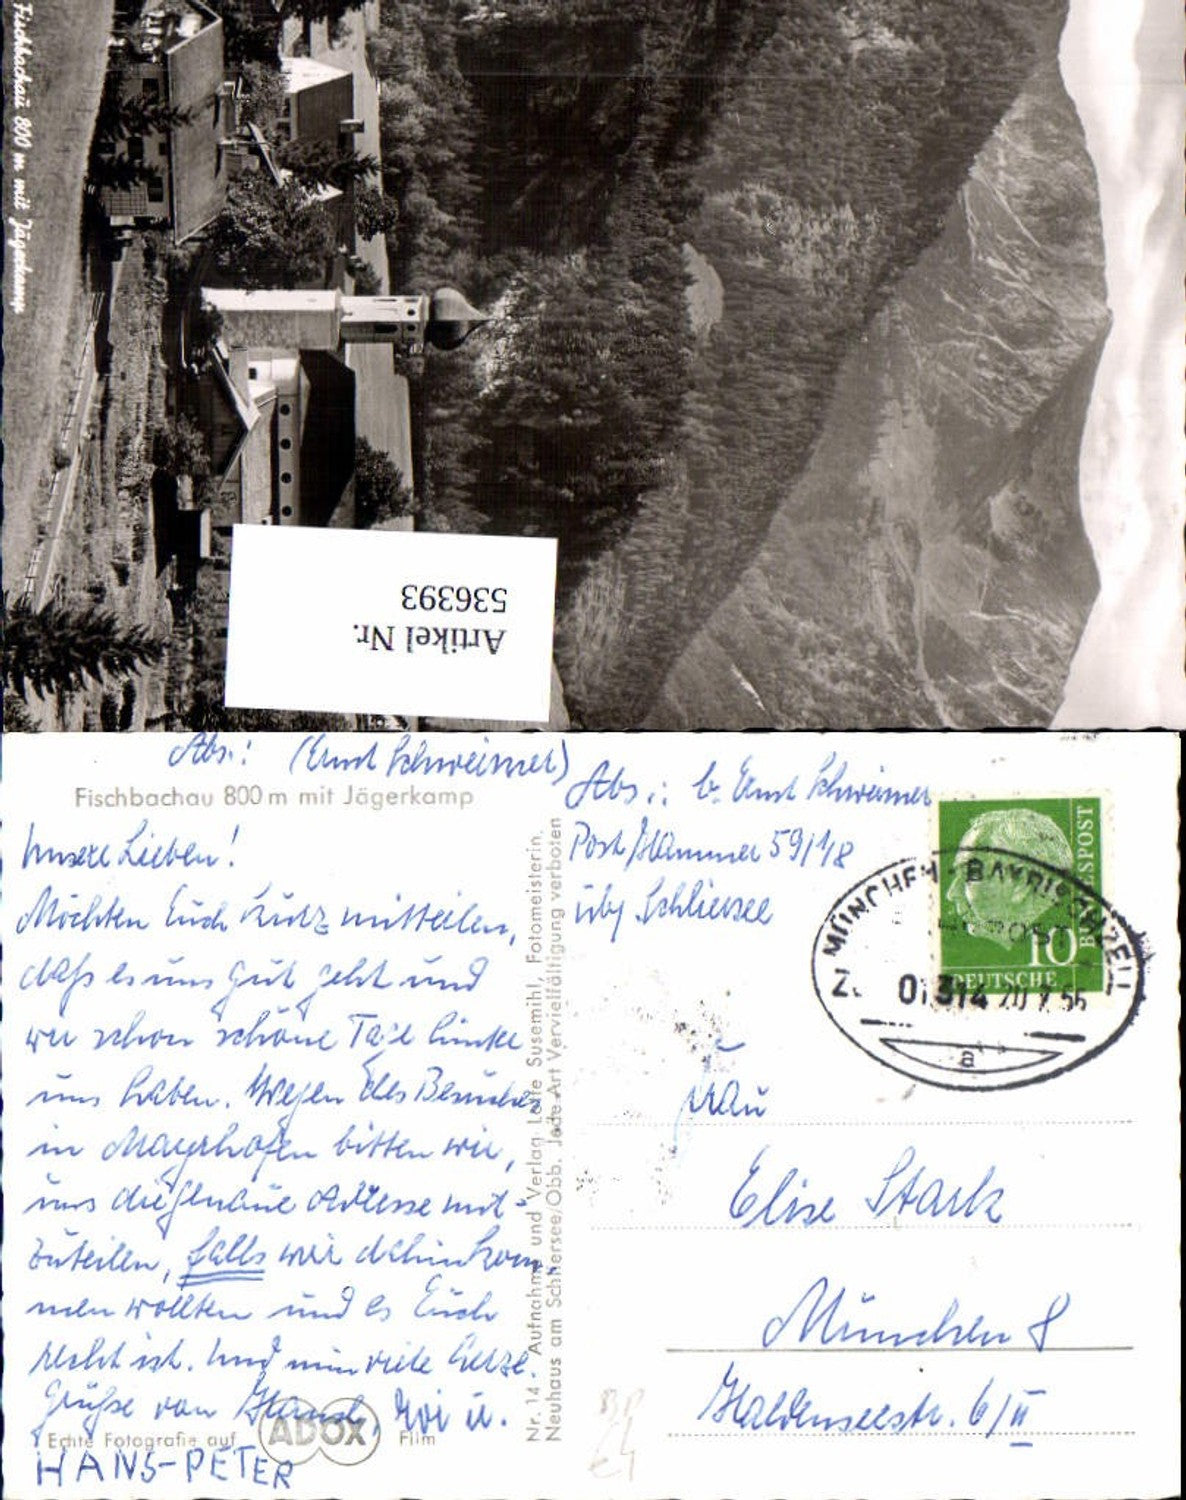 Fischbachau 800 m mit Jägerkamp
Artikel Nr.
536393
Abs.: (Ernst Schweimer)
Fischbachau 800 m mit Jägerkamp
Unsere Lieben!
Möchten Euch kurz mitteilen,
daß es uns gut geht und
wir schon schöne Tage hinter
uns haben. Wegen des Besuches
in Mayrhofen bitten wir,
uns die genaue Adresse mit-
zuteilen, falls wir dahinkom-
men wollten und es Euch
recht ist. Und nun viele herzl.
Grüße von Hansl, u.
HANS-PETER
Echte Fotografie auf ADOX Film
Nr. 14. Aufnahme und Verlag Lotte Susemihl, Fotomeisterin,
Neuhaus am Schliersee/Obb. Jede Art Vervielfältigung verboten
Abs.: b. Ernst Schweimer
Post Hammer 59 1/8
üb/ Schliersee
DEUTSCHE
BUNDESPOST
10
MÜNCHEN - BAYRISCHZELL
BAHNPOST
Z. 01314 20.7.55
a
Frau
Elise Stark
München 8
Haldenseestr. 6/II